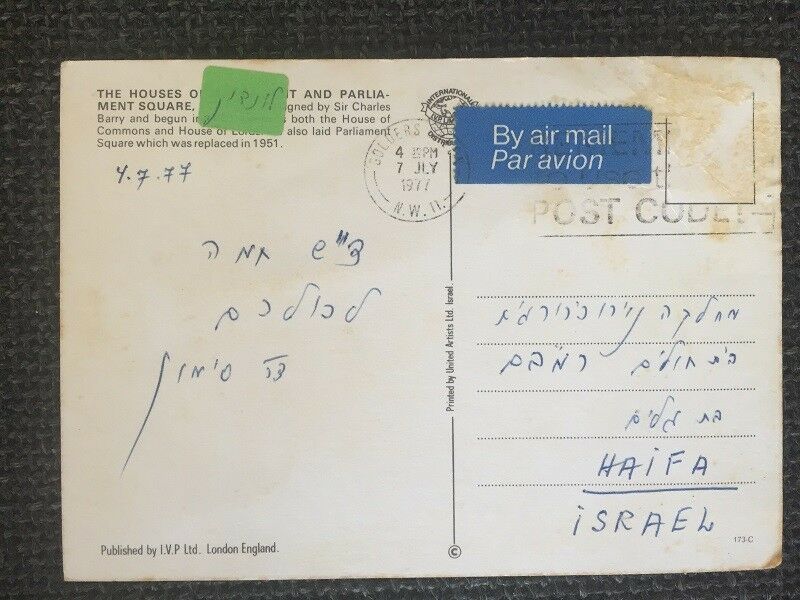 THE HOUSES OF ENT AND PARLIA-
MENT SQUARE, gned by Sir Charles
Barry and begun in both the House of
Commons and House of also laid Parliament
Square which was replaced in 1951.
לונדון
4.7.77
ד"ש חמה
לכולכם
דר סימון
Published by I.V.P Ltd. London England.
Printed by United Artists Ltd. Israel.
©
INTERNATIONAL
GOLDERS
4 PM
7 JLY
1977
N.W.11.
By air mail
Par avion
POST CODE
מחלקה נוירוכירורגית
בית חולים רמב"ם
בת גלים
HAIFA
ISRAEL
173-C